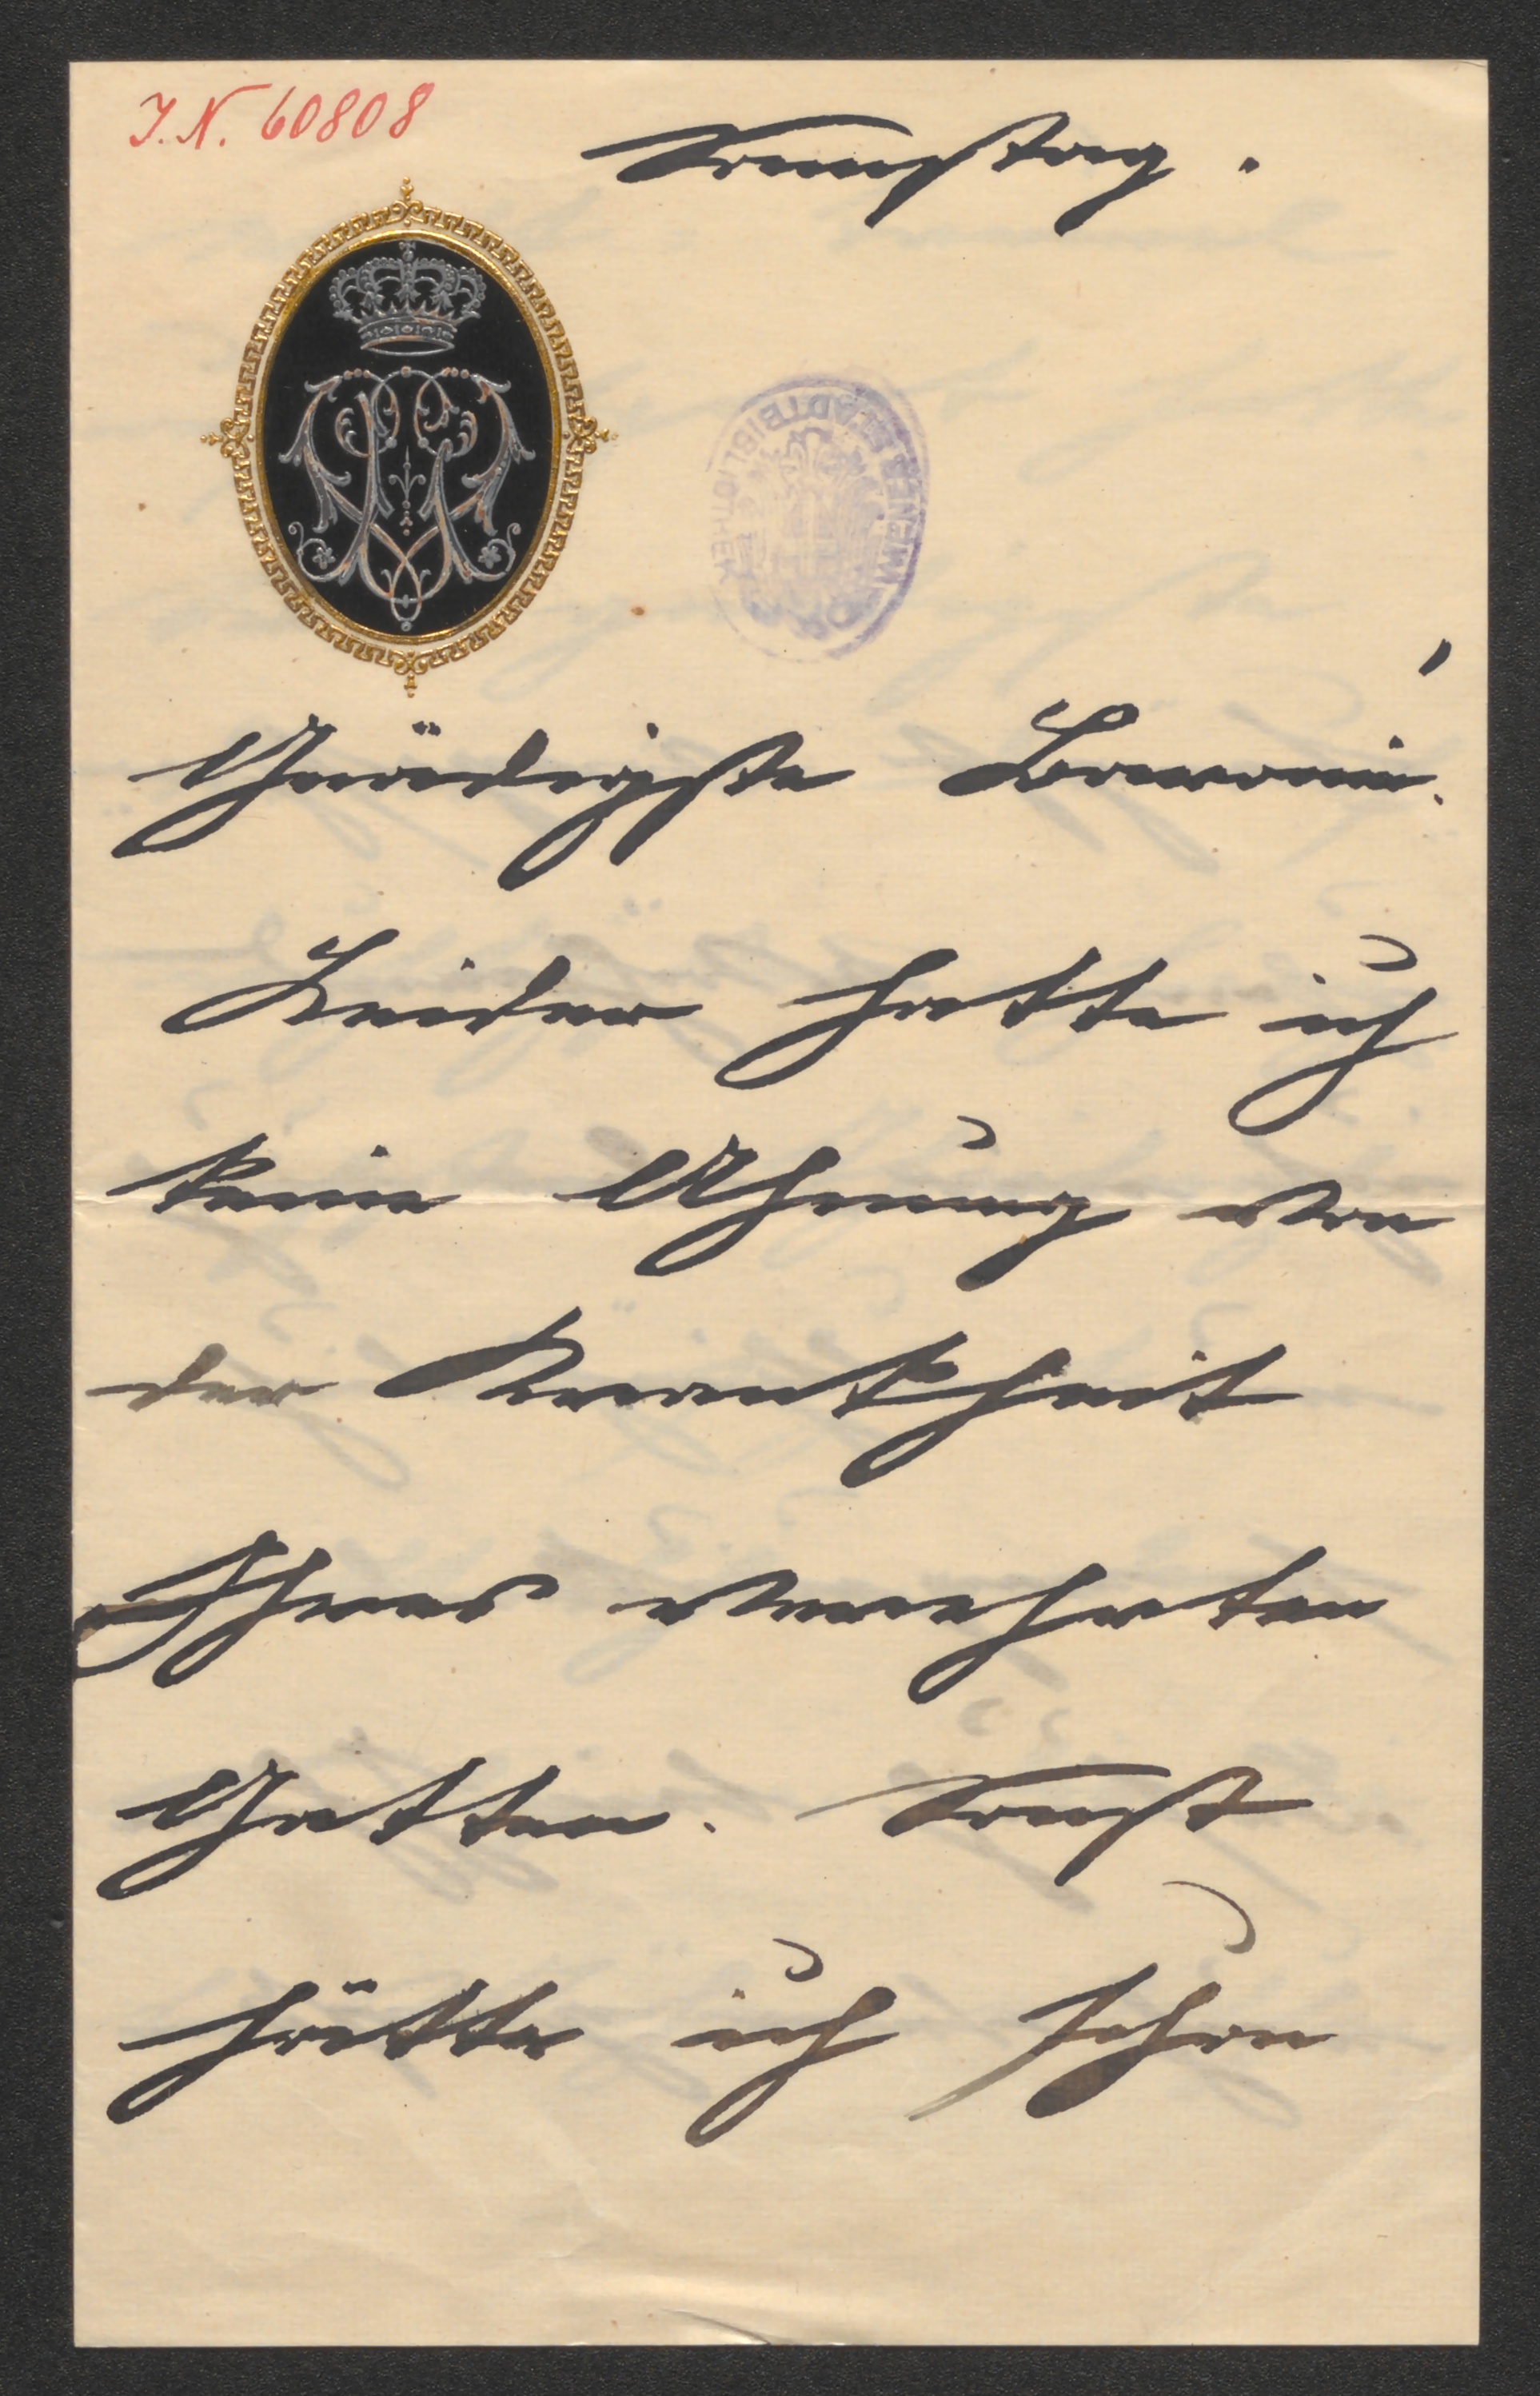 I.N. 60808
Samstag.
WIENER STADTBIBLIOTHEK
Gnädigste Baronin!
Leider hatte ich
keine Ahnung von
der Krankheit
Ihres verehrten
Gatten. Sonst
hätte ich schon